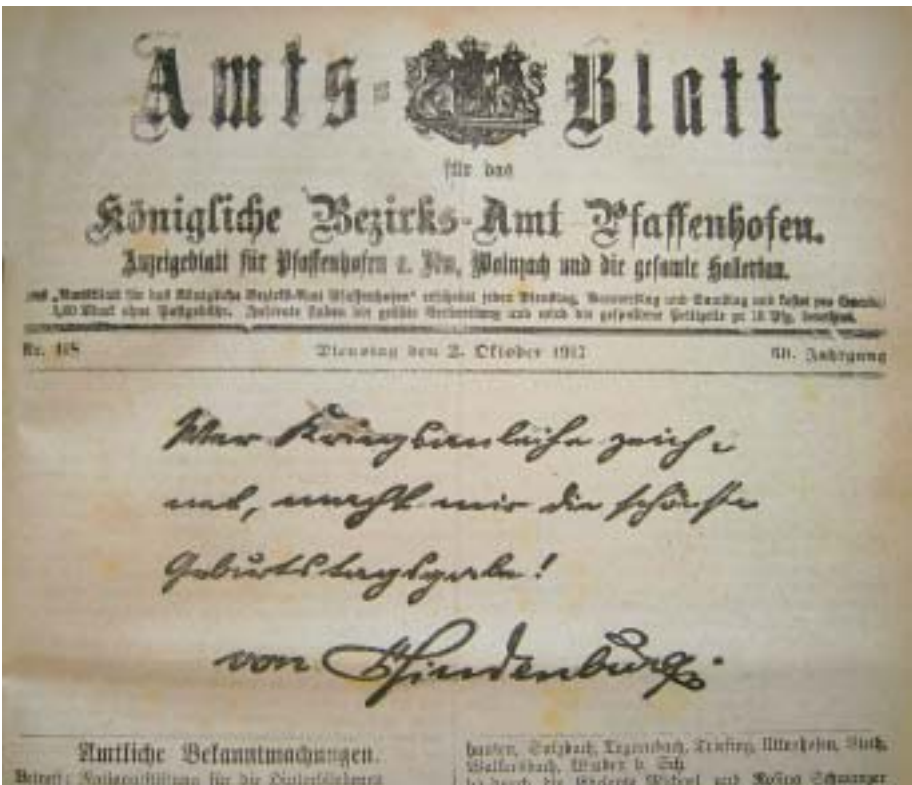 Amts-Blatt
für das
Königliche Bezirks-Amt Pfaffenhofen.
Anzeigeblatt für Pfaffenhofen a. Ilm, Wolnzach und die gesamte Hallertau.
„Amtsblatt für das Königliche Bezirks-Amt Pfaffenhofen“ erscheint jeden Dienstag, Donnerstag und Samstag und kostet pro
Mark ohne Postgebühr. Inserate finden die größte Verbreitung und wird die gespaltene Petitzeile zu Pfg. berechnet.
Nr. Dienstag den 2. Oktober 1917 Jahrgang
Wer Kriegsanleihe zeich-
net, macht mir die schönste
Geburtstagsgabe!
von Hindenburg.
Amtliche Bekanntmachungen.
Betreff: für die
hausen, Sulzbach, Tegernbach, Triefing, Uttenhofen,
Walkersbach, Winden b. Sch.
die und Schwarzer